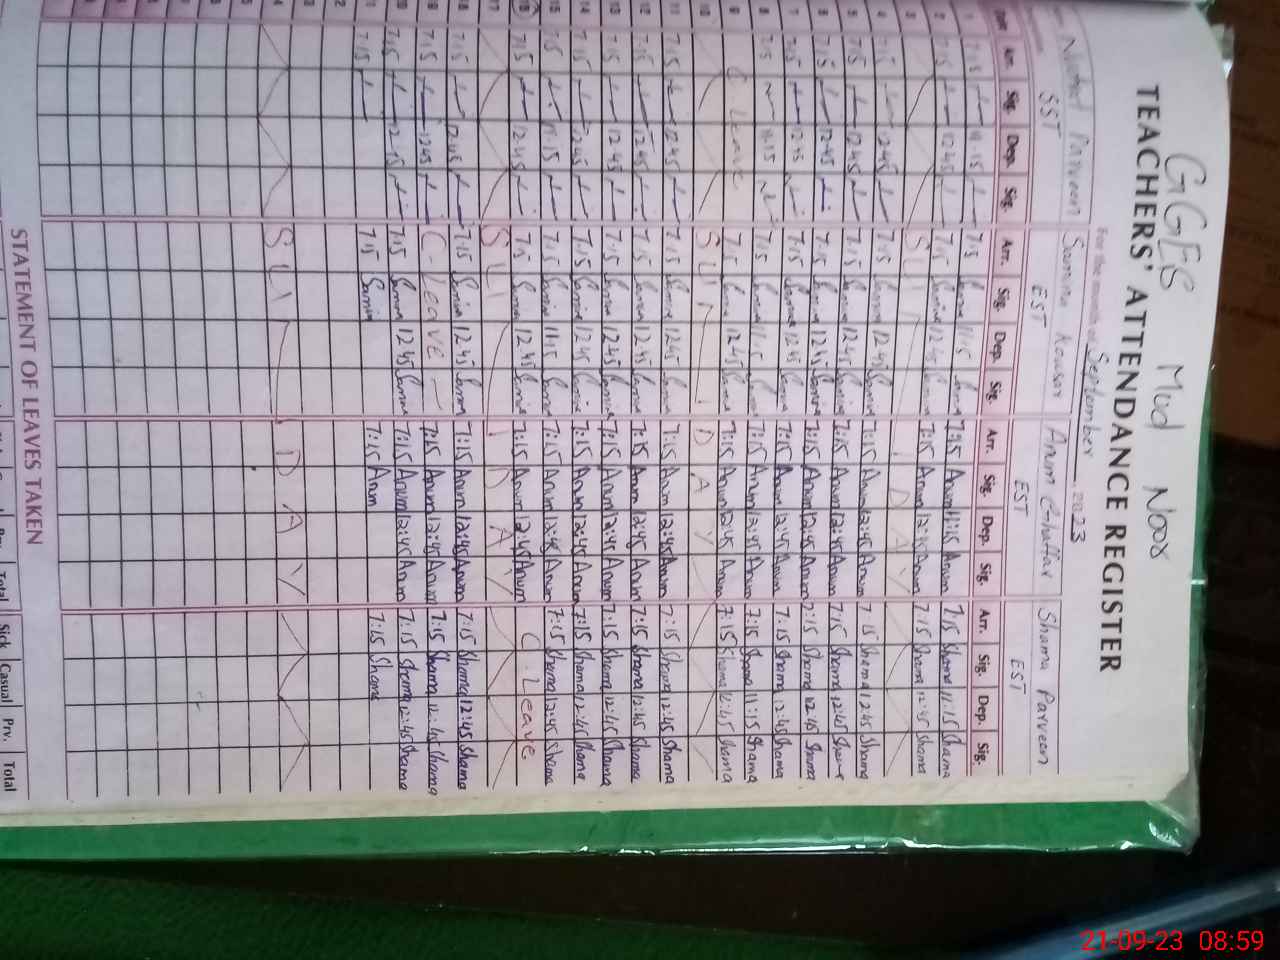 GGES Mud Noor
TEACHERS' ATTENDANCE REGISTER
For the month of September 2023
Parveen Samina Kousar Anum Ghaffar Shama Parveen
SST EST EST EST
Date Arr. Sig. Dep. Sig. Arr. Sig. Dep. Sig. Arr. Sig. Dep. Sig. Arr. Sig. Dep. Sig.
1 7:15 11:15 7:15 Samina 11:15 Samina 7:15 Anum 11:15 Anum 7:15 Shama 11:15 Shama
2 7:15 12:45 7:15 Samina 12:45 Samina 7:15 Anum 12:45 Anum 7:15 Shama 12:45 Shama
3 S U N D A Y
4 7:15 12:45 7:15 Samina 12:45 Samina 7:15 Anum 12:45 Anum 7:15 Shama 12:45 Shama
5 7:15 12:45 7:15 Samina 12:45 Samina 7:15 Anum 12:45 Anum 7:15 Shama 12:45 Shama
6 7:15 12:45 7:15 Samina 12:45 Samina 7:15 Anum 12:45 Anum 7:15 Shama 12:45 Shama
7 7:15 12:45 7:15 Samina 12:45 Samina 7:15 Anum 12:45 Anum 7:15 Shama 12:45 Shama
8 7:15 11:15 7:15 Samina 11:15 Samina 7:15 Anum 12:45 Anum 7:15 Shama 11:15 Shama
9 C Leave 7:15 Samina 12:45 Samina 7:15 Anum 12:45 Anum 7:15 Shama 12:45 Shama
10 S U N D A Y
11 7:15 12:45 7:15 Samina 12:45 Samina 7:15 Anum 12:45 Anum 7:15 Shama 12:45 Shama
12 7:15 12:45 7:15 Samina 12:45 Samina 7:15 Anum 12:45 Anum 7:15 Shama 12:45 Shama
13 7:15 12:45 7:15 Samina 12:45 Samina 7:15 Anum 12:45 Anum 7:15 Shama 12:45 Shama
14 7:15 12:45 7:15 Samina 12:45 Samina 7:15 Anum 12:45 Anum 7:15 Shama 12:45 Shama
15 7:15 11:15 7:15 Samina 11:15 Samina 7:15 Anum 12:45 Anum 7:15 Shama 12:45 Shama
16 7:15 12:45 7:15 Samina 12:45 Samina 7:15 Anum 12:45 Anum C Leave
17 S U N D A Y
18 7:15 12:45 7:15 Samina 12:45 Samina 7:15 Anum 12:45 Anum 7:15 Shama 12:45 Shama
19 7:15 12:45 C-Leave 7:15 Anum 12:45 Anum 7:15 Shama 12:45 Shama
20 7:15 12:45 7:15 Samina 12:45 Samina 7:15 Anum 12:45 Anum 7:15 Shama 12:45 Shama
21 7:15 7:15 Samina 7:15 Anum 7:15 Shama
22
23
24 S U N D A Y
25
26
27
28
29
30
31
STATEMENT OF LEAVES TAKEN
Total Sick Casual Prv. Total
21-09-23 08:59